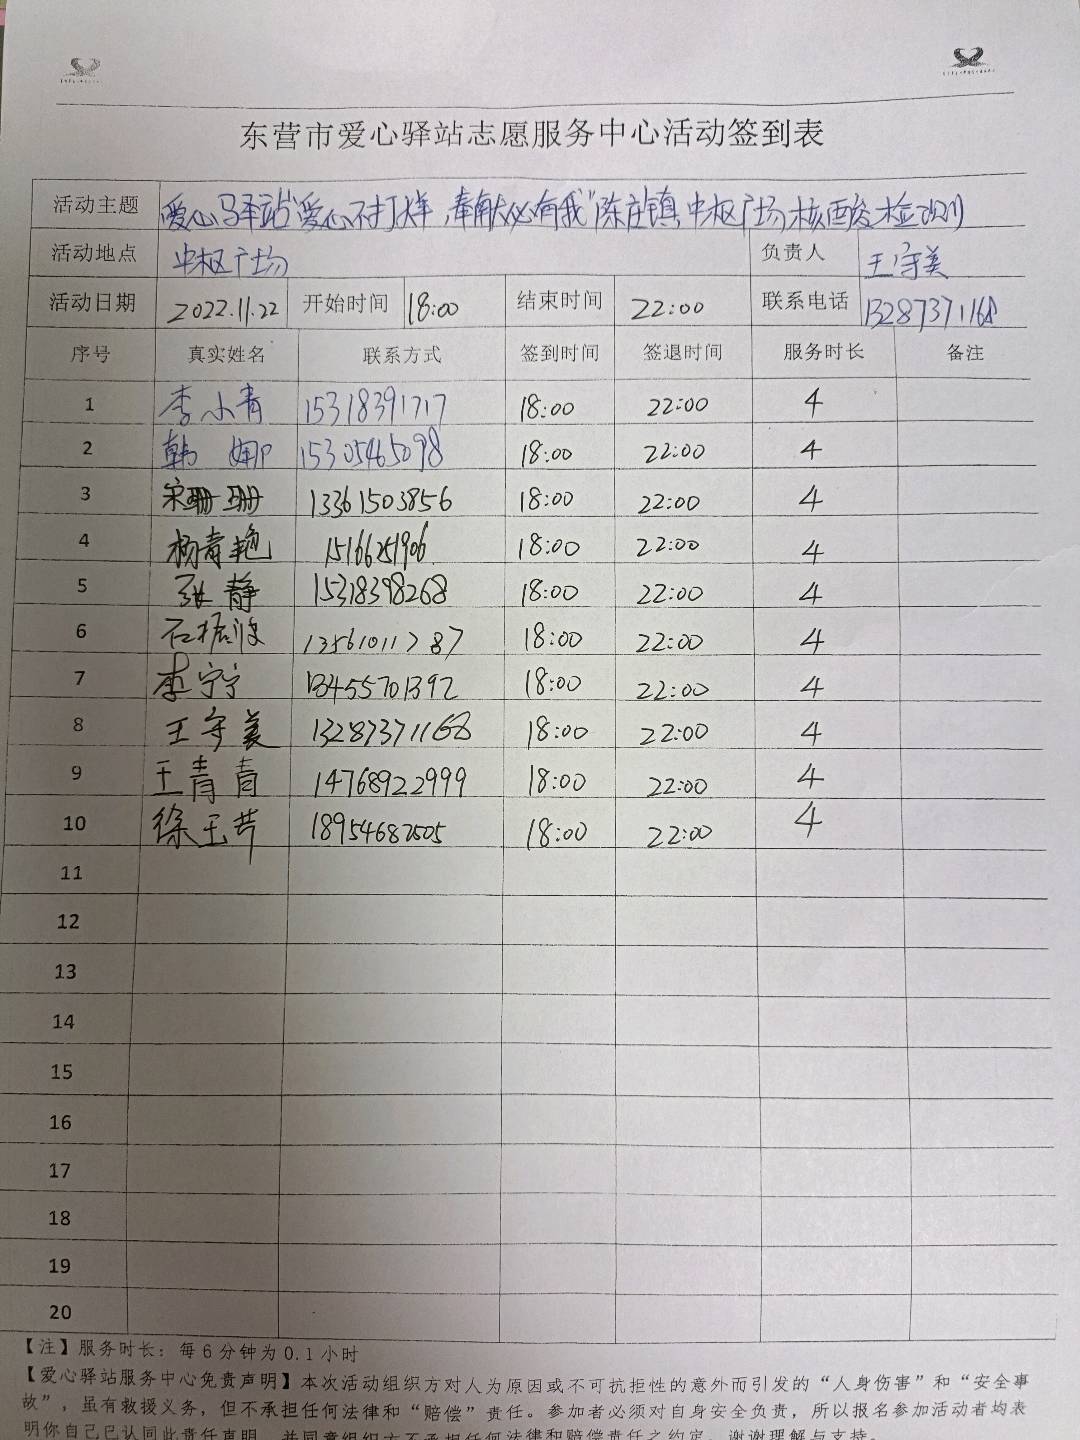 东营市爱心驿站志愿服务中心活动签到表
活动主题 爱心驿站"爱心不打烊,奉献必有我"陈庄镇中枢广场核酸检测
活动地点 中枢广场 负责人 王守美
活动日期 2022.11.22 开始时间 18:00 结束时间 22:00 联系电话 13287371168
序号 真实姓名 联系方式 签到时间 签退时间 服务时长 备注
1 李小青 15318391717 18:00 22:00 4
2 韩娜 15305465098 18:00 22:00 4
3 宋珊珊 13361503856 18:00 22:00 4
4 杨青艳 15166251906 18:00 22:00 4
5 张静 15318398268 18:00 22:00 4
6 石振波 13561011787 18:00 22:00 4
7 李宁宁 13455701392 18:00 22:00 4
8 王守美 13287371168 18:00 22:00 4
9 王青青 14768922999 18:00 22:00 4
10 徐玉芹 18954682505 18:00 22:00 4
11
12
13
14
15
16
17
18
19
20
【注】服务时长:每6分钟为0.1小时
【爱心驿站服务中心免责声明】本次活动组织方对人为原因或不可抗拒性的意外而引发的“人身伤害”和“安全事
故”,虽有救援义务,但不承担任何法律和“赔偿”责任。参加者必须对自身安全负责,所以报名参加活动者均表
明你自己已认同此责任声明,并同意组织方不承担任何法律和赔偿责任之约定。谢谢理解与支持。